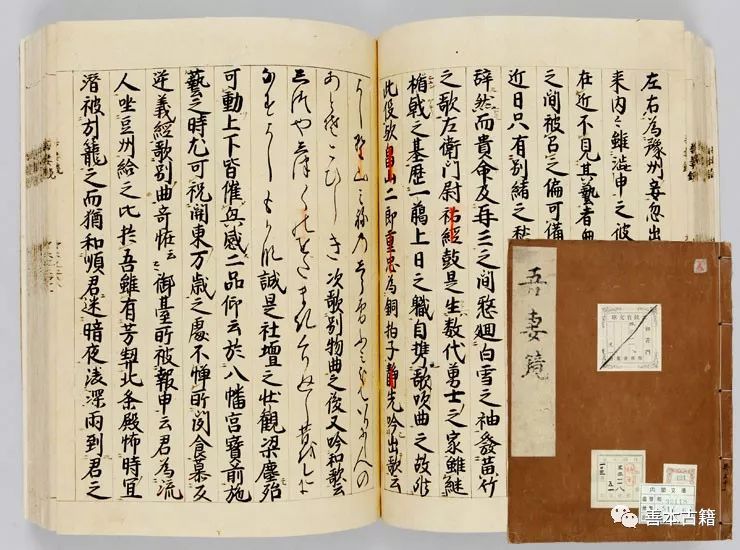 左右為豫州妾忽出
来内々雖澁申之彼
在近不見其藝者無
之間被召之偏可備
近日只有別緒之愁
辞然而貴命及再三之間憖廻白雪之袖發黄竹
之歌左衛門尉祐經鼓是生数代勇士之家雖継
楯戟之基歴一臈上日之職自携歌吹曲之故也
此役歟畠山二郎重忠為銅拍子静先吟出歌云
よしの山みねのしら雪ふみわけていりにし人の
あとそこひしき 次歌別物曲之後又吟和歌云
しつやしつ〱のをたまきくり返し昔を今に
なすよしもかな 誠是社壇之壮観梁塵殆
可動上下皆催興感二品仰云於八幡宮寶前施
藝之時尤可祝関東万歳之處不憚所聞食慕反
逆義經歌別曲奇恠云々御臺所被報申云君為流
人坐豆州給之比於吾雖有芳契北条殿怖時宜
潜被引籠之而猶和順君迷暗夜凌深雨到君之
吾妻鏡
内閣文庫
善本古籍